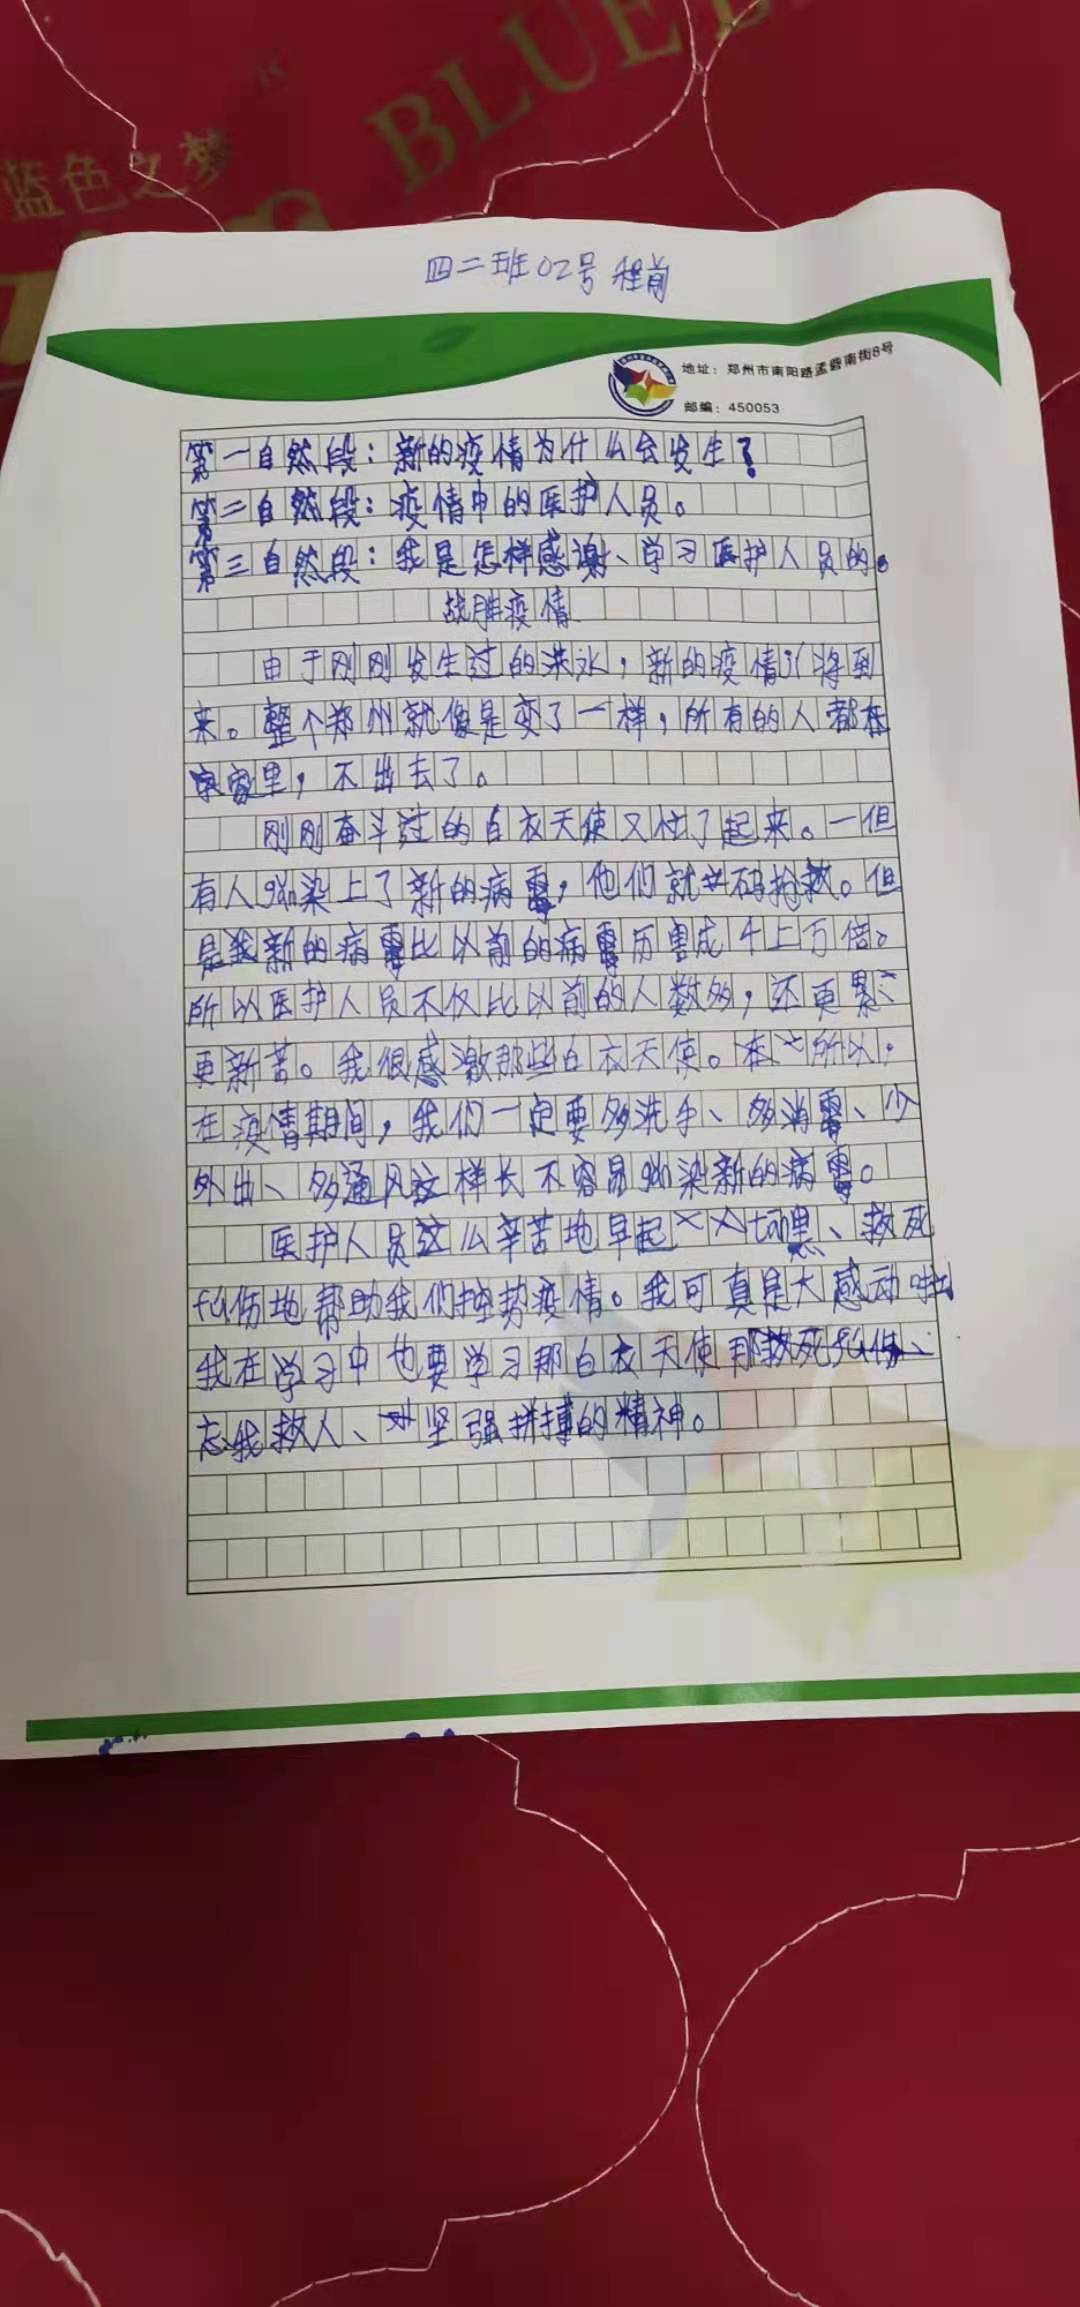 蓝色之梦
BLUE
四二班02号 程前
地址：郑州市南阳路孟砦南街8号
邮编：450053
第一自然段：新的疫情为什么会发生？
第二自然段：疫情中的医护人员。
第三自然段：我是怎样感谢、学习医护人员的。
战胜疫情
由于刚刚发生过的洪水，新的疫情将到
来。整个郑州就像是变了一样，所有的人都在
家里，不出去了。
刚刚奋斗过的白衣天使又忙了起来。一但
有人gǎn染上了新的病毒，他们就抢救。但
是新的病毒比以前的病毒历害成千上万倍。
所以医护人员不仅比以前的人数多，还更累
更新苦。我很感激那些白衣天使。所以，
在疫情期间，我们一定要多洗手、多消毒、少
外出、多通风这样长不容易gǎn染新的病毒。
医护人员这么辛苦地早起tān黑、救死
fú伤地帮助我们控势疫情。我可真是大感动啦
我在学习中也要学习那白衣天使那救死fú伤、
忘我救人、坚强拼搏的精神。